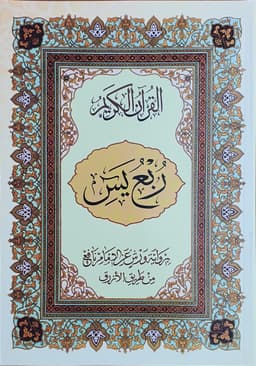 القرآن الكريم
رُبْعُ يسٓ
برواية ورش عن الإمام نافع
من طريق الأزرق